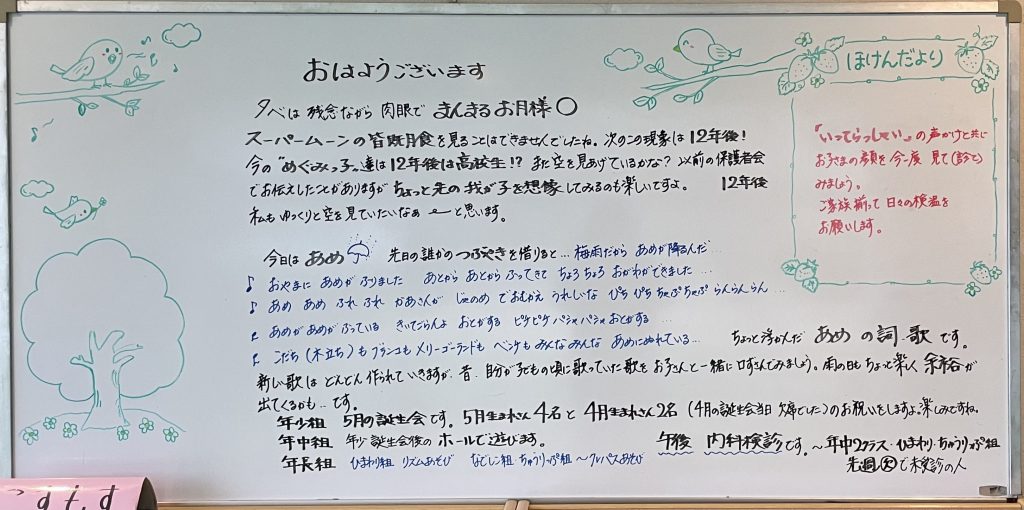 おはようございます
夕べは 残念ながら 肉眼で まんまるお月様○
スーパームーンの皆既月食を見ることはできませんでしたね。次のこの現象は12年後!
今の"めぐみっ子"達は12年後は高校生!? また空を見あげているかな? 以前の保護者会
でお伝えしたことがありますが ちょっと先の我が子を想像してみるのも楽しいですよ。 12年後
私も ゆっくりと空を見ていたいなぁ 〜と思います。
今日は あめ 先日の誰かのつぶやきを借りると… 梅雨だから あめが降るんだ…
♪ おやまに あめが ふりました あとから あとから ふってきて ちょろちょろ おがわができました …
♪ あめ あめ ふれ ふれ かあさんが じゃのめ で おむかえ うれしいな ぴち ぴち ちゃぷ ちゃぷ らんらんらん …
♪ あめが あめが ふっている きいてごらんよ おとがする ピチピチ パシャパシャ おとがする …
♪ こだち(木立ち)も ブランコも メリーゴーランドも ベンチも みんな みんな あめにぬれている…
ちょっと浮かんだ あめ の詞・歌 です。
新しい歌は どんどん 作られていきますが、昔、自分が子どもの頃に歌っていた歌を お子さんと一緒に 口ずさんでみましょう。雨の日も ちょっと楽しく 余裕が
出てくるかも…です。
年少組 5月の誕生会です。5月生まれさん4名と4月生まれさん2名(4月の誕生会当日 欠席でした)のお祝いをしますよ。楽しみですね。
年中組 年少 誕生会後の ホールで遊びます。
年長組 ひまわり組 リズムあそび なでしこ組・ちゅうりっぷ組 〜クレパスあそび
午後 内科検診です。〜年中2クラス・ひまわり・ちゅうりっぷ組
先週㊋で未検診の人
ほけんだより
『いってらっしゃい』の声かけと共に
お子さまの顔を今一度 見て(診て)
みましょう。
ご家族揃って 日々の検温を
お願いします。